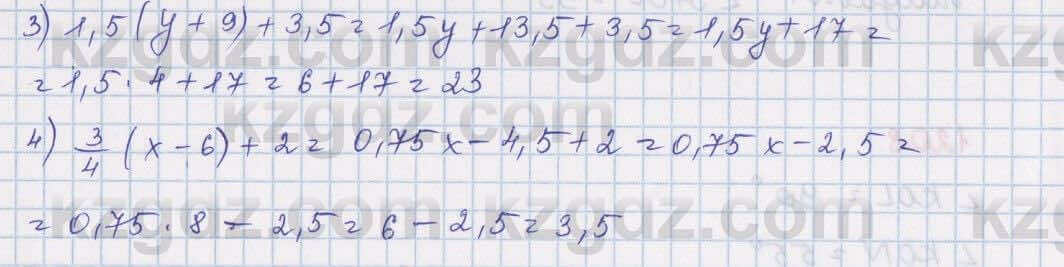 3) 1,5 (y + 9) + 3,5 = 1,5y + 13,5 + 3,5 = 1,5y + 17 =
= 1,5 · 4 + 17 = 6 + 17 = 23
4) 3/4 (x - 6) + 2 = 0,75x - 4,5 + 2 = 0,75x - 2,5 =
= 0,75 · 8 - 2,5 = 6 - 2,5 = 3,5
kzgdz.com